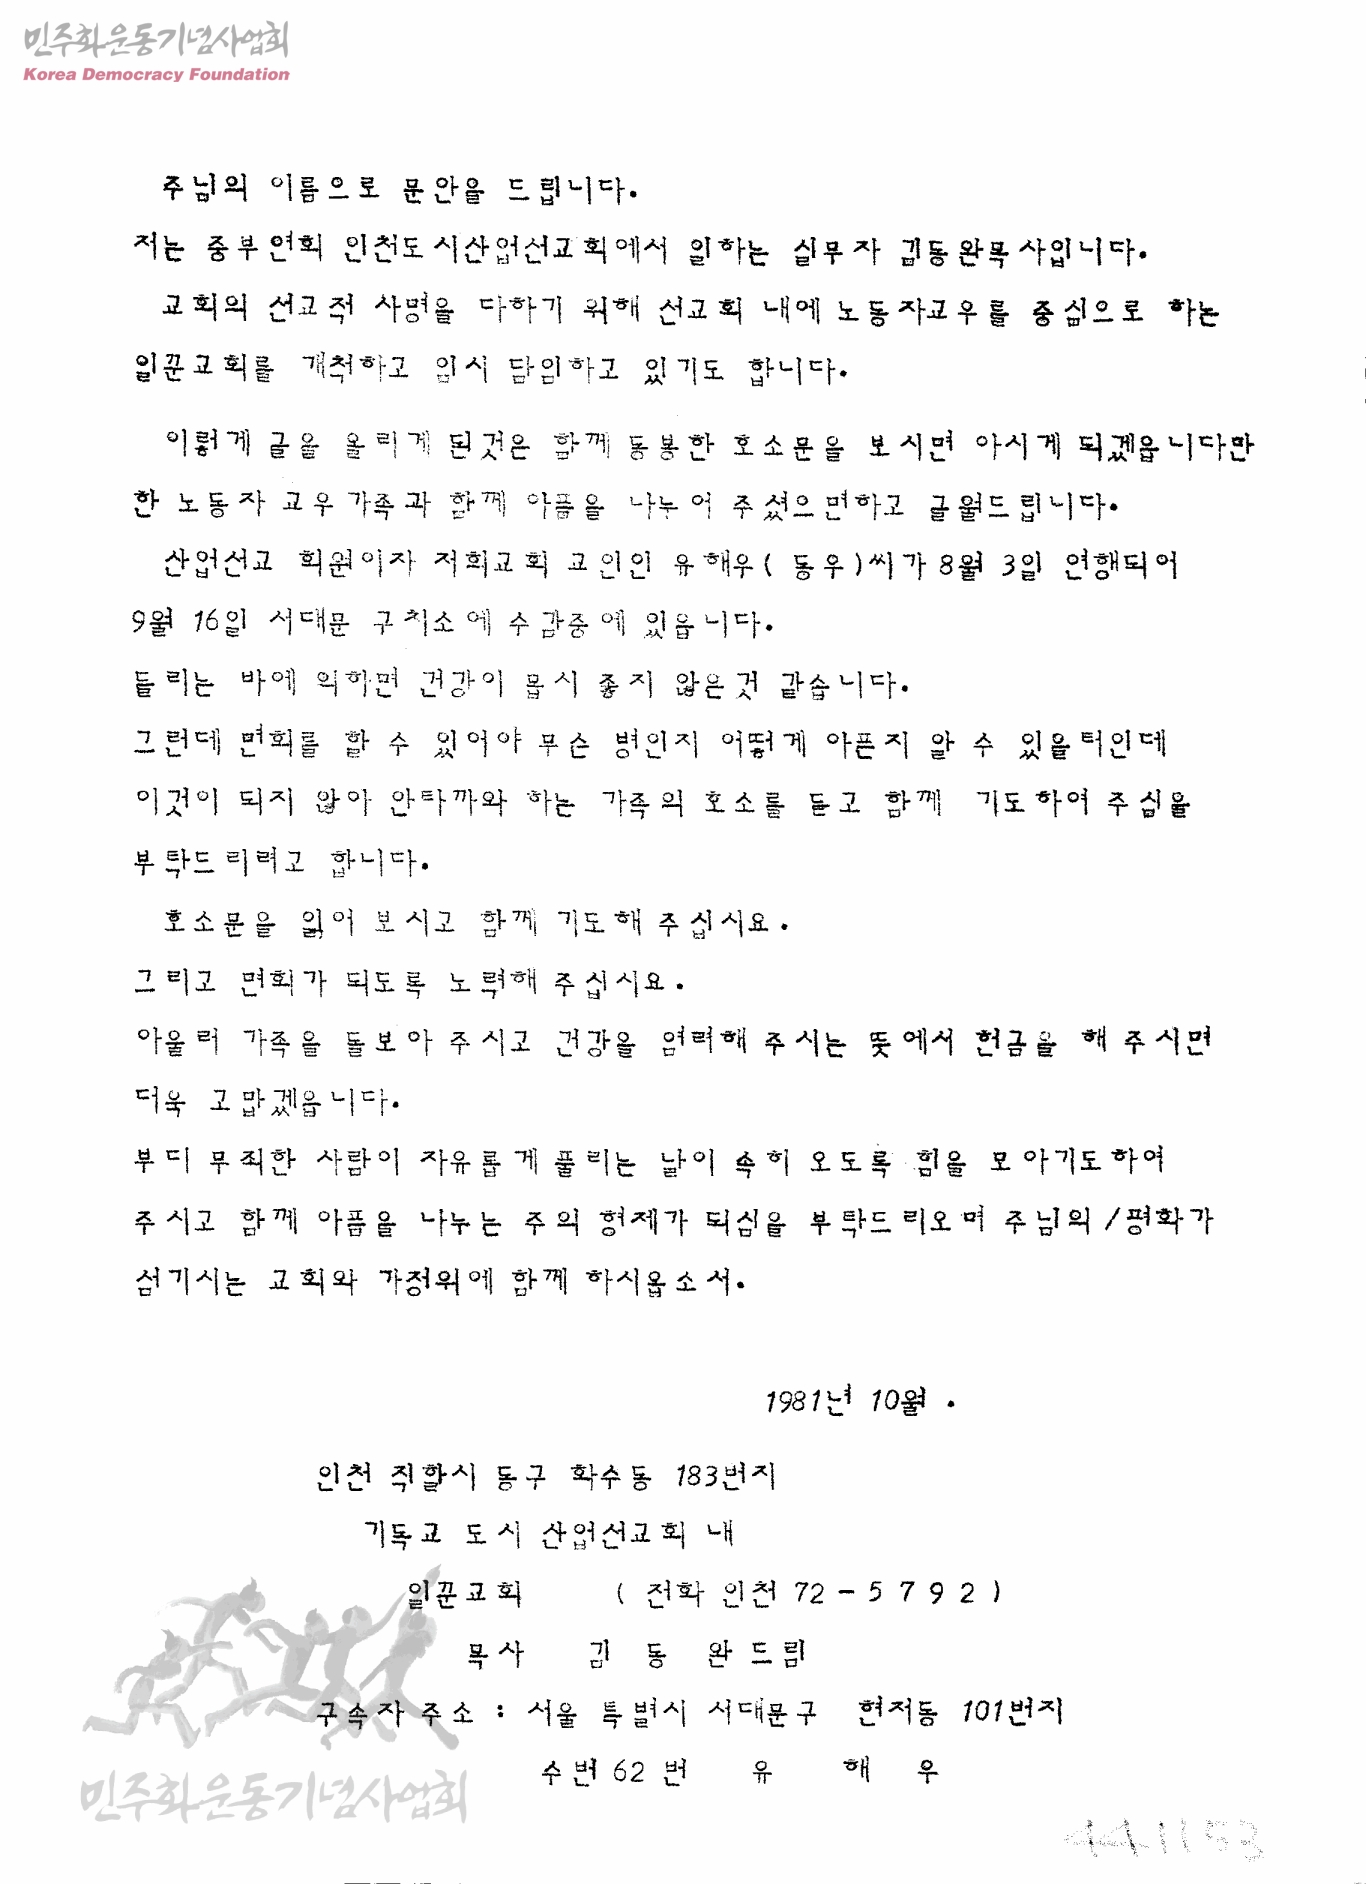 민주화운동기념사업회
Korea Democracy Foundation
주님의 이름으로 문안을 드립니다.
저는 중부연회 인천도시산업선교회에서 일하는 실무자 김동완목사입니다.
교회의 선교적 사명을 다하기 위해 선교회 내에 노동자교우를 중심으로 하는
일꾼교회를 개척하고 임시 담임하고 있기도 합니다.
이렇게 글을 올리게 된것은 함께 동봉한 호소문을 보시면 아시게 되겠읍니다만
한 노동자 교우 가족과 함께 아픔을 나누어 주셨으면하고 글월드립니다.
산업선교 회원이자 저희교회 교인인 유해우( 동우)씨가 8월 3일 연행되어
9월 16일 서대문 구치소에 수감중에 있읍니다.
들리는 바에 의하면 건강이 몹시 좋지 않은것 같습니다.
그런데 면회를 할 수 있어야 무슨 병인지 어떻게 아픈지 알 수 있을터인데
이것이 되지 않아 안타까와 하는 가족의 호소를 듣고 함께 기도하여 주심을
부탁드리려고 합니다.
호소문을 읽어 보시고 함께 기도해 주십시요.
그리고 면회가 되도록 노력해 주십시요.
아울러 가족을 돌보아 주시고 건강을 염려해 주시는 뜻에서 헌금을 해 주시면
더욱 고맙겠읍니다.
부디 무죄한 사람이 자유롭게 풀리는 날이 속히 오도록 힘을 모아기도하여
주시고 함께 아픔을 나누는 주의 형제가 되심을 부탁드리오며 주님의 /평화가
섬기시는 교회와 가정위에 함께 하시옵소서.
1981년 10월 .
인천 직할시 동구 화수동 183번지
기독교 도시 산업선교회 내
일꾼교회 ( 전화 인천 72-5792)
목사 김 동 완 드림
구속자 주소 : 서울 특별시 서대문구 현저동 101번지
수번 62 번 유 해 우
민주화운동기념사업회
441153